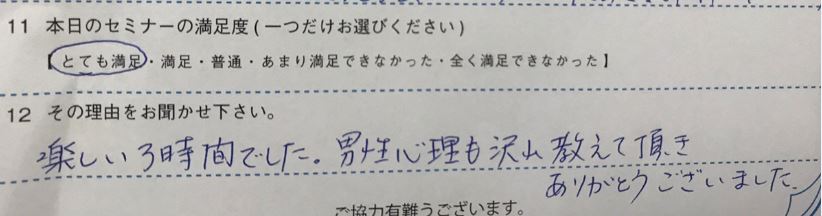 11 本日のセミナーの満足度(一つだけお選びください)
【とても満足・満足・普通・あまり満足できなかった・全く満足できなかった】
12 その理由をお聞かせ下さい。
楽しい3時間でした。男性心理も沢山教えて頂き
ありがとうございました。
ご協力有難うございます。